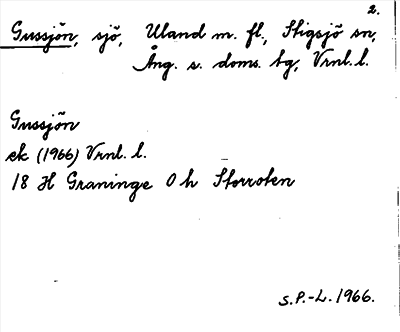 2.
Gussjön, sjö, Uland m. fl., Stigsjö sn,
Ång. s. doms. tg, Vrnl. l.
Gussjön
ek (1966) Vrnl. l.
18 H Graninge 0 h Storroten
S.P.-L. 1966.